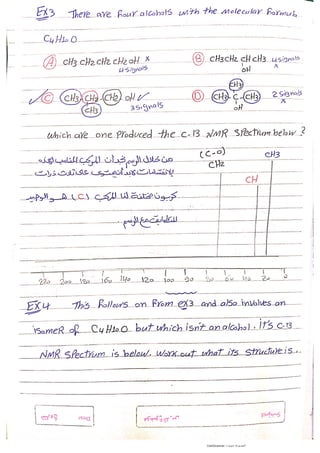 EX3 There are four alcohols with the Molecular formula
C4H10O
(A) CH3 CH2 CH2 CH2 OH x
4 signals
(B) CH3CH2 CH CH3 4 signals
OH x
(C) CH3 CH2 CH2 OH ✓
CH3
3 signals
(D) CH3 C CH3 2 signals
CH3
OH x
which are one produced the C-13 NMR spectrum below?
(C-O)
CH2
CH3
CH
من خلال الرسم نجد أن المركب
على ثلاث ذرات
كربون مختلفة لذا المركب (C) هو الوحيد
مع الرسم
220 200 180 160 140 120 100 80 60 40 20 0
EX4 This follows on from ex3 and also involves an
isomer of C4H10O but which isn't an alcohol. it's C-13
NMR spectrum is below. work out what its structure is.
CamScanner